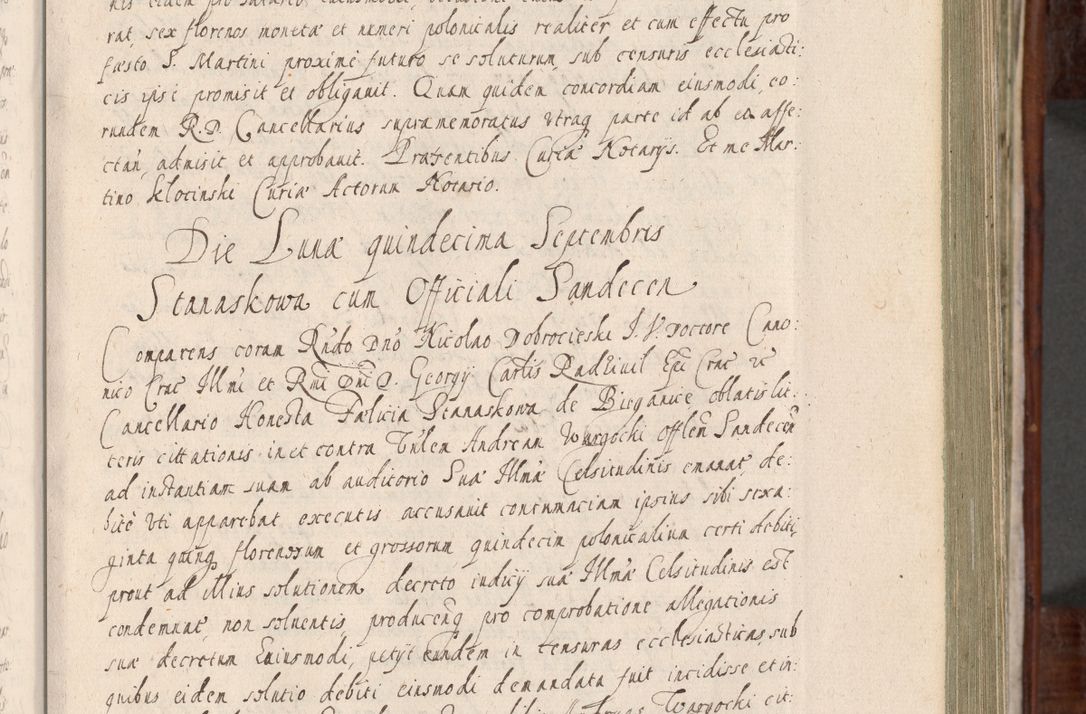 rat, sex florenos monetæ et numeri polonicalis realiter et cum effectu pro
fæsto S. Martini proximè futuro se soluturum, sub censuris ecclesiasti:
cis ipsi promisit et obligauit. Quam quidem concordiam eiusmodi, eo:
rundem R.D. Cancellarius supramemoratus vtraq parte id ab eo affe:
ctan, admisit et approbauit. Præsentibus Curiæ Notarijs. Et me Mar:
tino Klocinski Curiæ Actorum Notario.
Die Lunæ quindecima Septembris
Stanaskowa cum Officiali Sandecen
Comparens coram Rndo Dno Nicolao Dobrocieski I.V. Doctore Cano:
nico Crac Illmi et Rmi Dni D. Georgij Cartis Radziuil Epi Crac
Cancellario Honesta Fælicia Stanaskowa de Bieganice oblatis lit:
teris cittationis in et contra Andream Wargocki Offlem Sandecen
ad instantiam suam ab auditorio Suæ Illmæ Celsitudinis emanat, de:
bitè vti apparebat executis accusauit contumaciam ipsius sibi sexa:
ginta quinq florenorum et grossorum quindecim polonicalium certi debiti,
prout ad illius solutionem decreto iudicij suæ Illmæ Celsitudinis est
condemnat, non soluentis producenq pro comprobatione allegationis
suæ decretum Euiusmodi, petijt eundem in censuras ecclesiasticas, sub
quibus eidem solutio debiti eiusmodi demandata fuit incidisse et in: